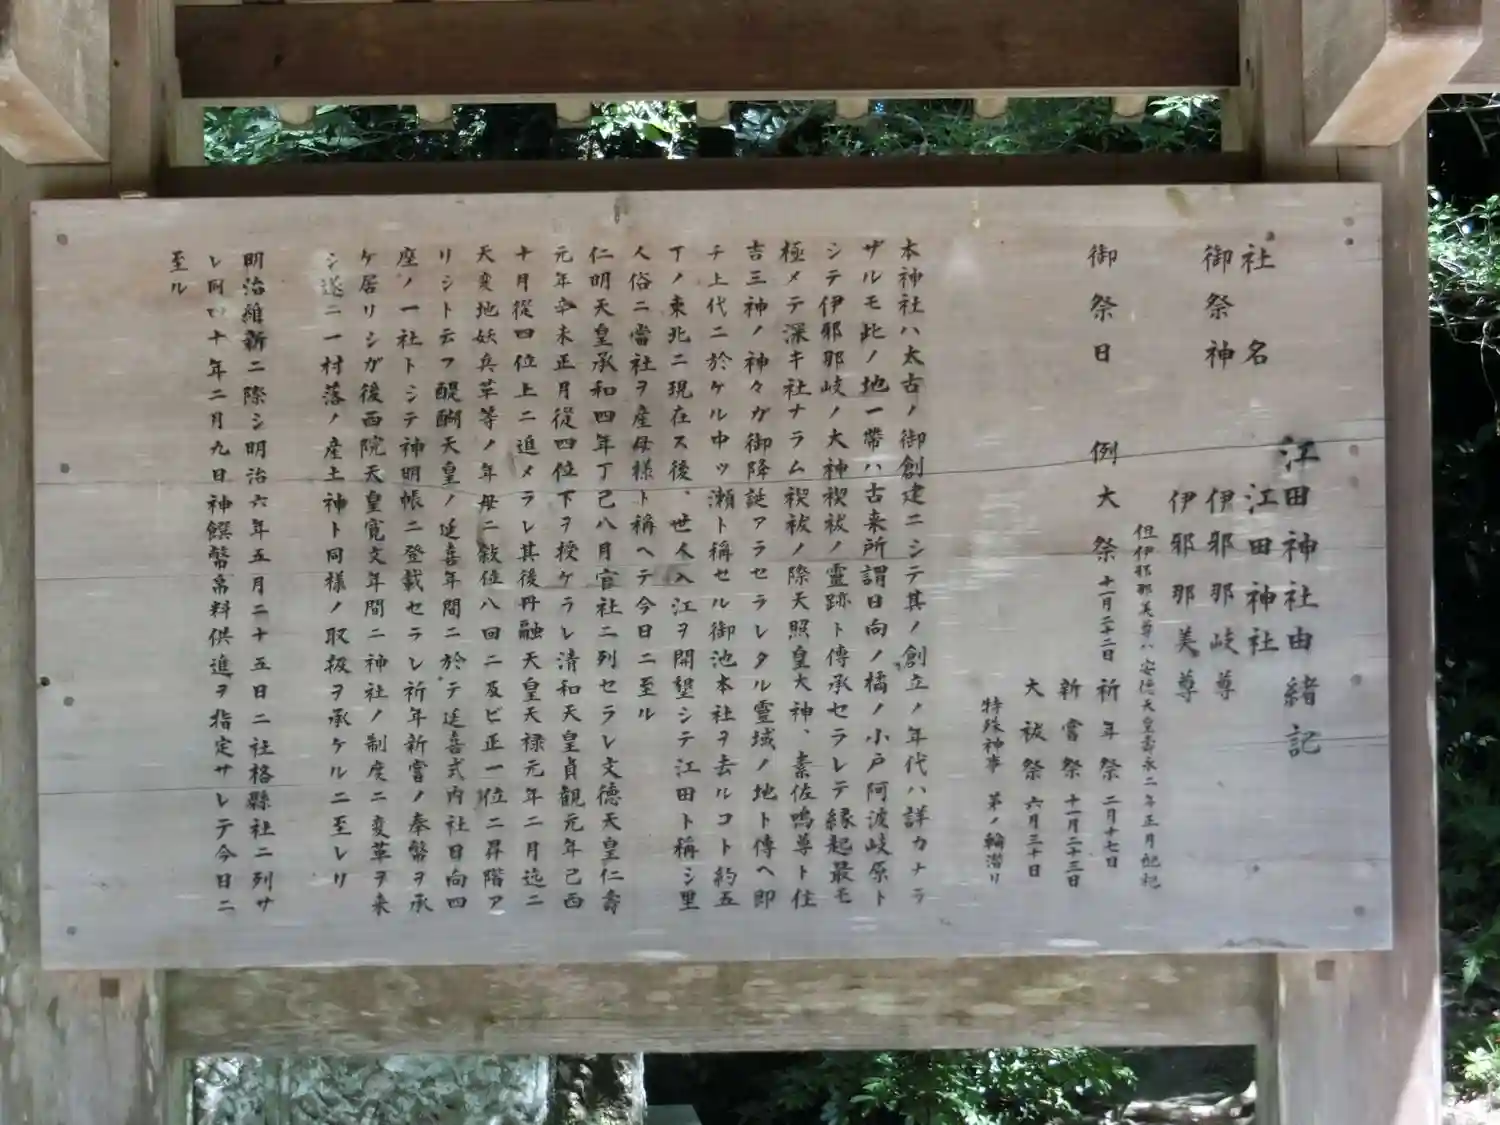 江田神社由緒記
社名 江田神社
御祭神 伊邪那岐尊
伊邪那美尊
但伊邪那美尊ハ安徳天皇壽永二年正月配祀
御祭日 例大祭 十一月二十二日 祈年祭 二月十七日
新嘗祭 十一月二十三日
大祓祭 六月三十日
特殊神事 茅ノ輪潜リ
本神社ハ太古ノ御創建ニシテ其ノ創立ノ年代ハ詳カナラ
ザルモ此ノ地一帶ハ古来所謂日向ノ橘ノ小戸阿波岐原ト
シテ伊邪那岐ノ大神禊祓ノ靈跡ト傳承セラレテ縁起最モ
極メテ深キ社ナラム禊祓ノ際天照皇大神、素佐嗚尊ト住
吉三神ノ神々ガ御降誕アラセラレタル霊域ノ地ト傳ヘ即
チ上代ニ於ケル中ツ瀬ト稱セル御池本社ヲ去ルコト約五
丁ノ東北ニ現在ス後、世人入江ヲ開墾シテ江田ト稱シ里
人俗ニ當社ヲ産母様ト稱ヘテ今日ニ至ル
仁明天皇承和四年丁巳八月官社ニ列セラレ文徳天皇仁壽
元年辛未正月從四位下ヲ授ケラレ清和天皇貞観元年己酉
十月從四位上ニ進メラレ其後丹融天皇天禄元年二月迄ニ
天変地妖兵革等ノ年毎ニ敘位八回ニ及ビ正一位ニ昇階ア
リシト云フ醍醐天皇ノ延喜年間ニ於テ延喜式内社日向四
座ノ一社トシテ神明帳ニ登載セラレ祈年新嘗ノ奉幣ヲ承
ケ居リシガ後西院天皇寛文年間ニ神社ノ制度ニ変革ヲ来
シ遂ニ一村落ノ産土神ト同様ノ取扱ヲ承ケルニ至レリ
明治維新ニ際シ明治六年五月二十五日ニ社格縣社ニ列サ
レ同四十年二月九日神饌幣帛料供進ヲ指定サレテ今日ニ
至ル